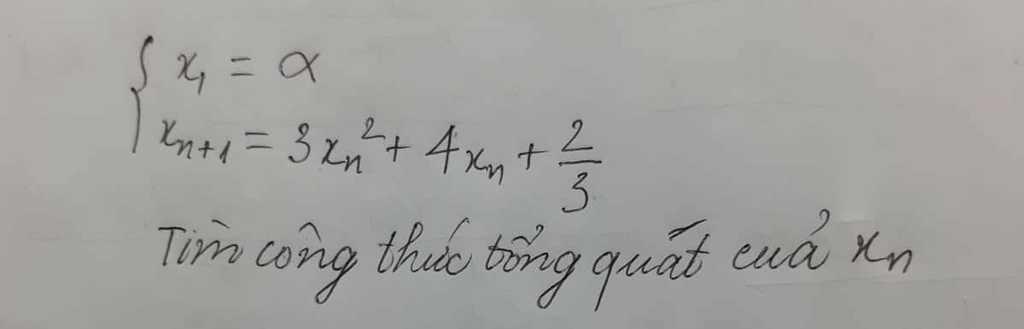 { x₁ = α
xₙ₊₁ = 3xₙ² + 4xₙ + 2/3
Tìm công thức tổng quát của xₙ